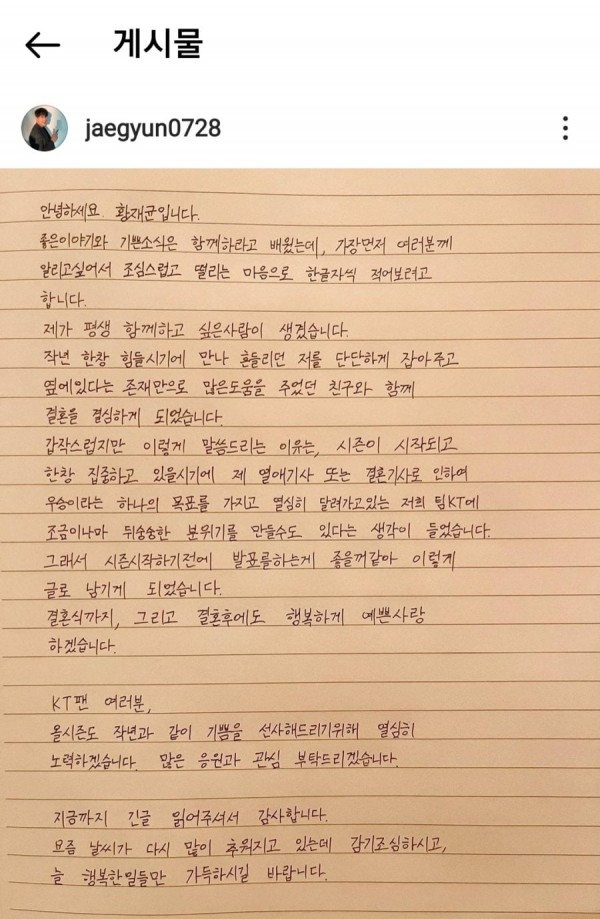 게시물
jaegyun0728
안녕하세요 황재균입니다.
좋은이야기와 기쁜소식은 함께하라고 배웠는데, 가장먼저 여러분께
알리고싶어서 조심스럽고 떨리는 마음으로 한글자씩 적어보려고
합니다.
제가 평생 함께하고 싶은사람이 생겼습니다.
작년 한창 힘들시기에 만나 흔들리던 저를 단단하게 잡아주고
옆에있다는 존재만으로 많은도움을 주었던 친구와 함께
결혼을 결심하게 되었습니다.
갑작스럽지만 이렇게 말씀드리는 이유는, 시즌이 시작되고
한창 집중하고 있을시기에 제 열애기사 또는 결혼기사로 인하여
우승이라는 하나의 목표를 가지고 열심히 달려가고있는 저희 팀KT에
조금이나마 뒤숭숭한 분위기를 만들수도 있다는 생각이 들었습니다.
그래서 시즌시작하기전에 발표를하는게 좋을꺼같아 이렇게
글로 남기게 되었습니다.
결혼식까지, 그리고 결혼후에도 행복하게 예쁜사랑
하겠습니다.
KT팬 여러분,
올시즌도 작년과 같이 기쁨을 선사해드리기위해 열심히
노력하겠습니다. 많은 응원과 관심 부탁드리겠습니다.
지금까지 긴글 읽어주셔서 감사합니다.
요즘 날씨가 다시 많이 추워지고 있는데 감기조심하시고,
늘 행복한일들만 가득하시길 바랍니다.